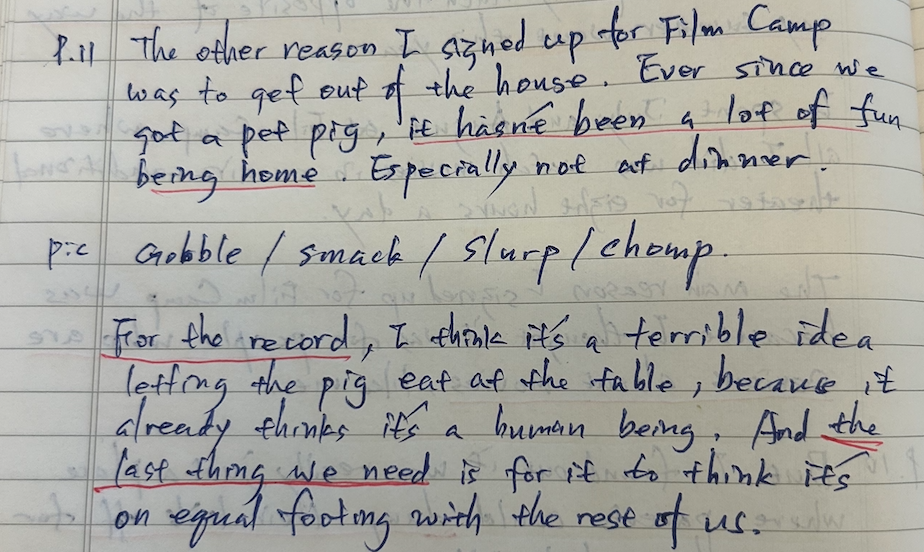 P.11 The other reason I signed up for Film Camp
was to get out of the house. Ever since we
got a pet pig, it hasn't been a lot of fun
being home. Especially not at dinner.
pic Gobble / smack / slurp / chomp.
For the record, I think it's a terrible idea
letting the pig eat at the table, because it
already thinks it's a human being. And the
last thing we need is for it to think it's
on equal footing with the rest of us.